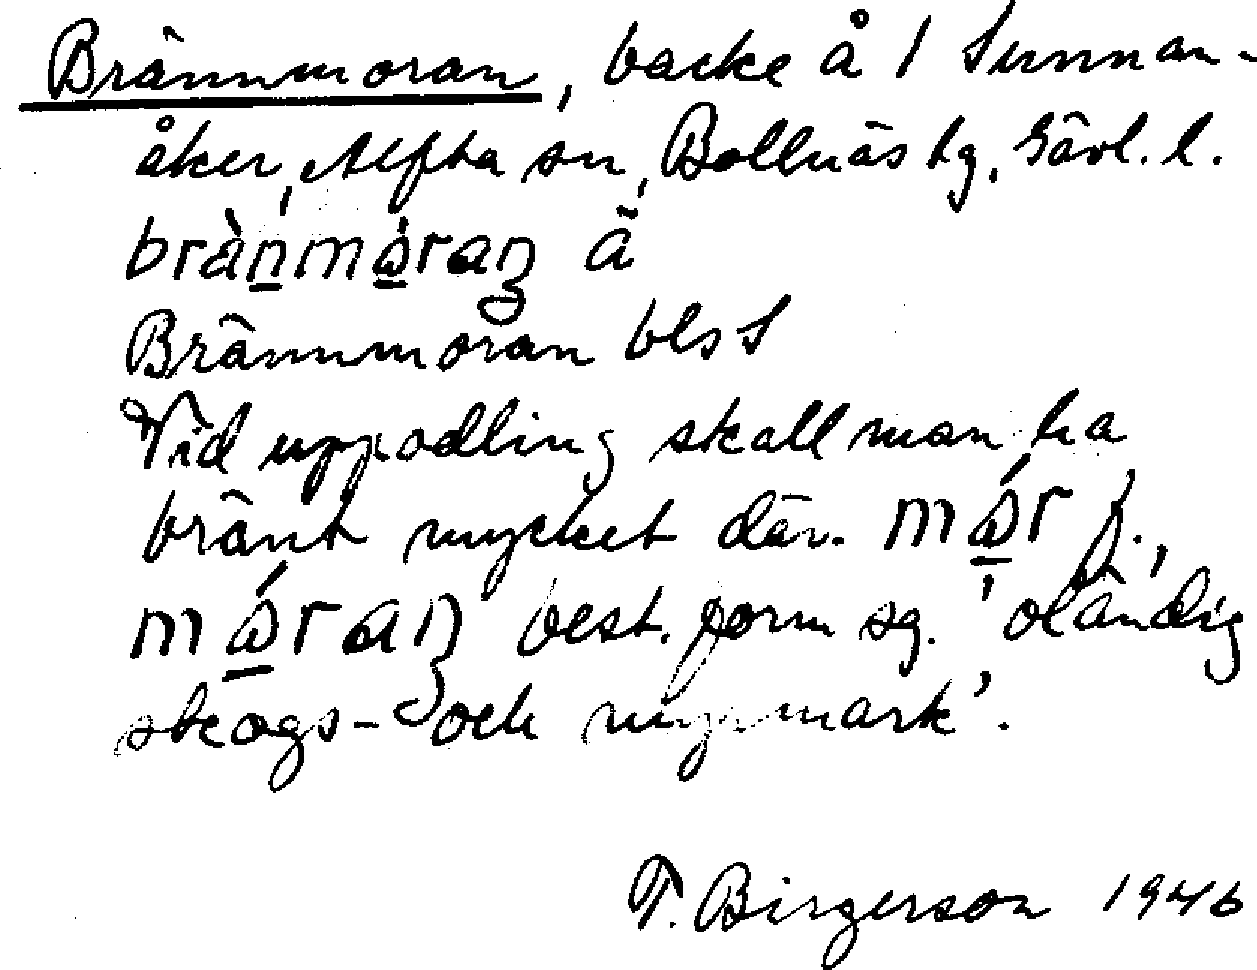 Brännmoran, backe å 1 Sunnan-
åker, Alfta sn, Bollnäs tg, Gävl. l.
brànmóraŋ ä
Brännmoran bls S
Vid uppodling skall man ha
bränt mycket där. mór f.,
móraŋ best. form sg. 'oländig
skogs- och myrmark'.
T. Birgerson 1946